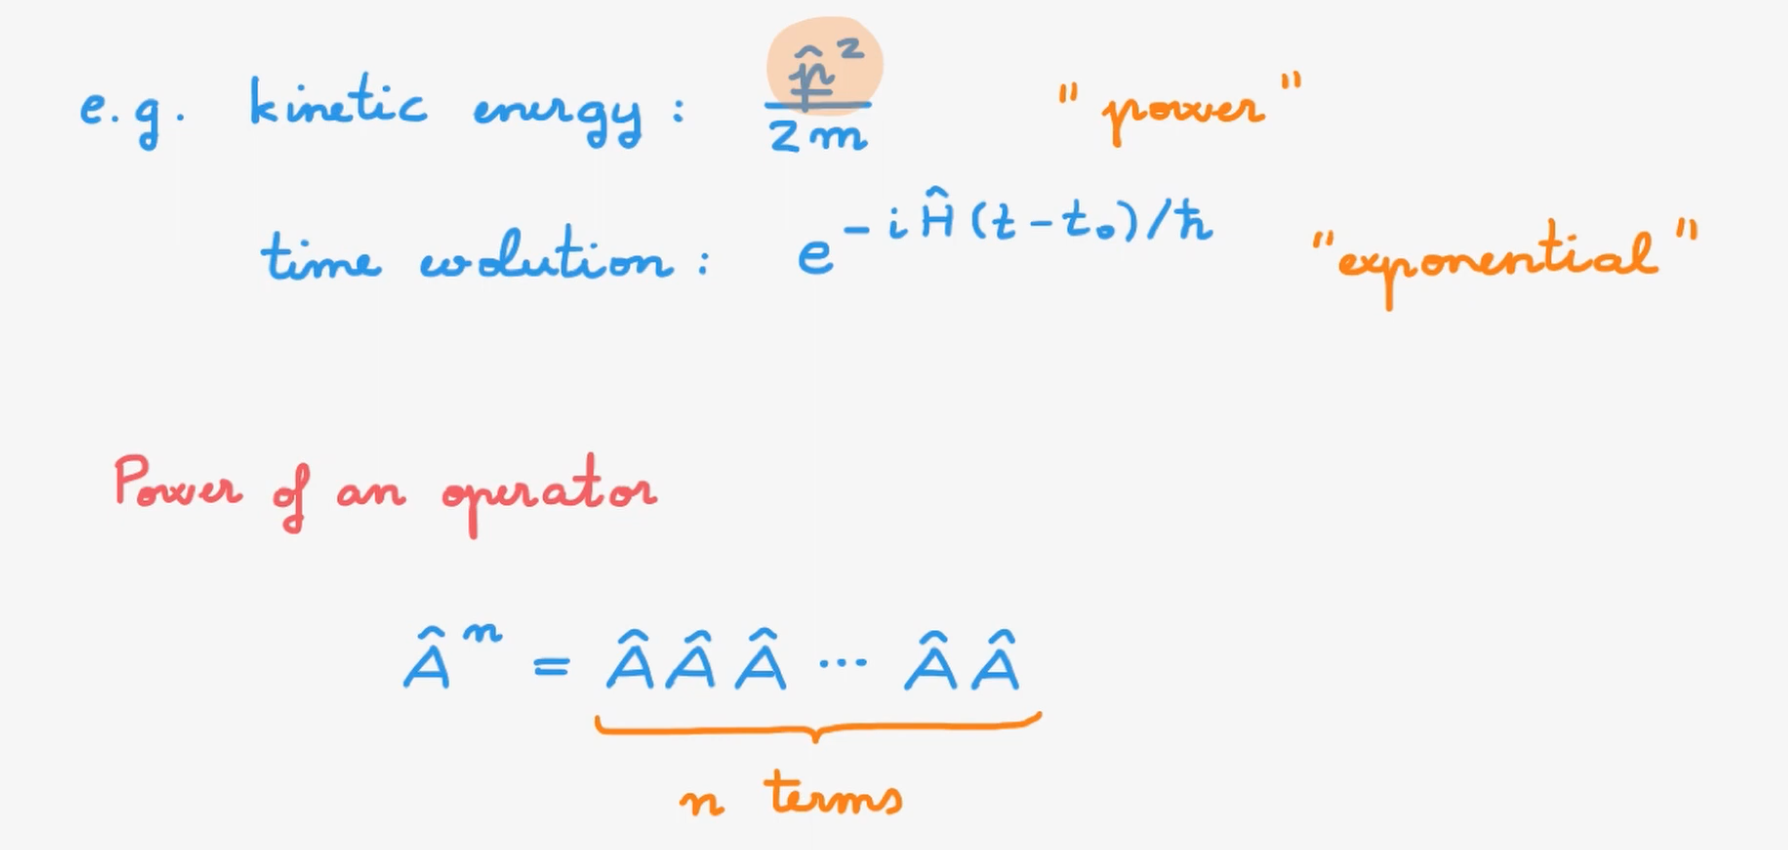 e.g. kinetic energy : p̂²/2m "power"
time evolution : e^{-iĤ(t-t₀)/ħ} "exponential"
Power of an operator
Âⁿ = ÂÂÂ ... ÂÂ
n terms